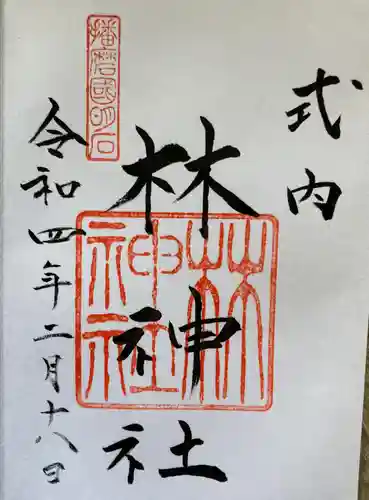 式内
林神社
令和四年二月十八日
播磨國明石
林神社